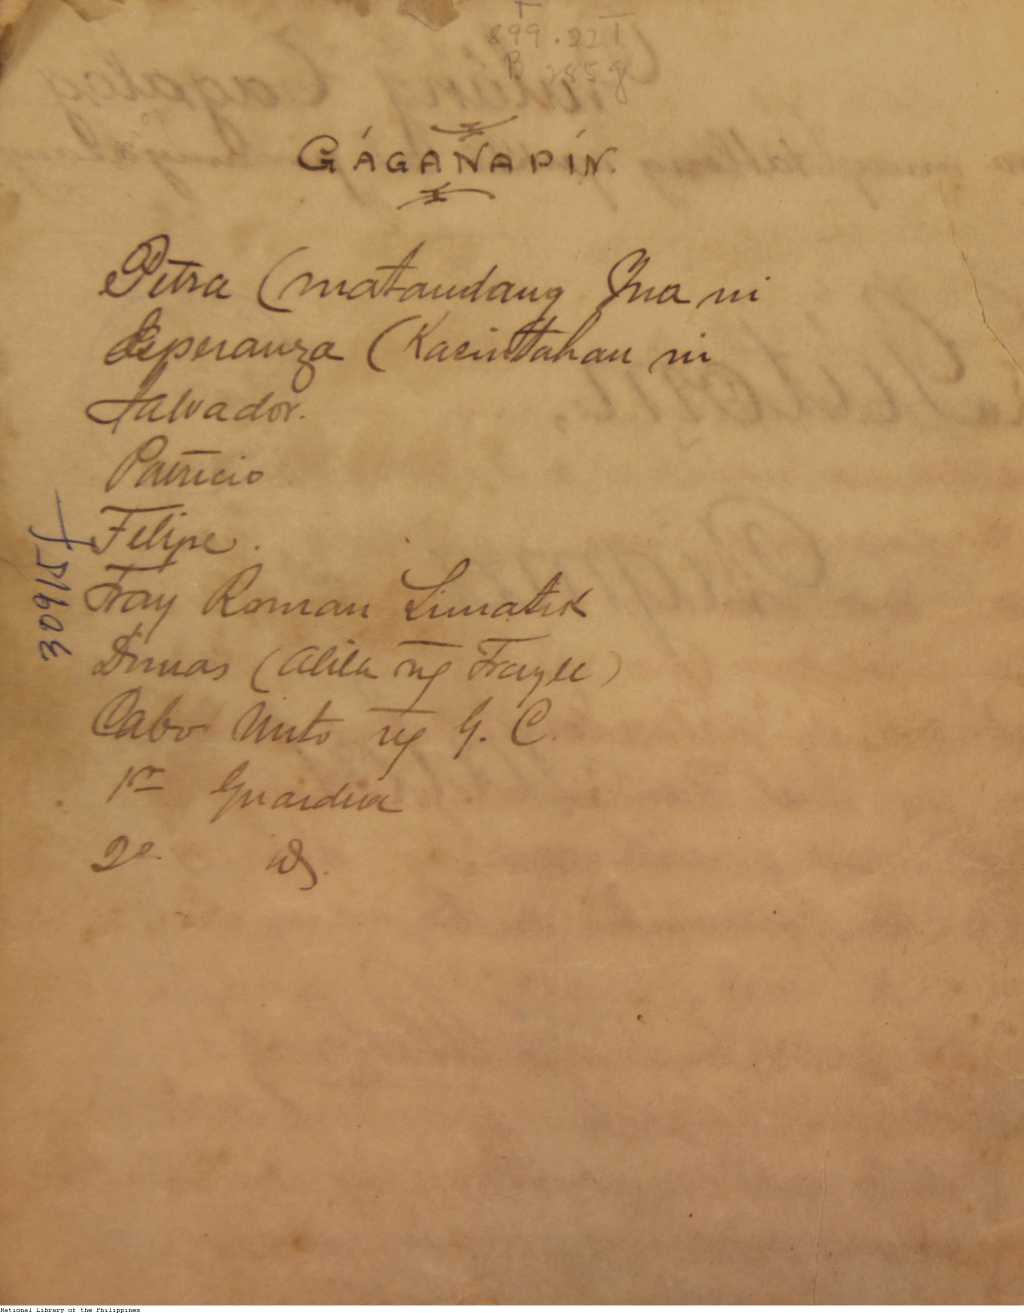 899.22T
B285g
GÁGANAPÍN.
Petra (matandang Ina ni
Esperanza (Kacintahan ni
Salvador.
Patricio
Felipe.
Fray Roman Limatik
Dimas (alila ng Frayle)
Cabo Nieto ng G. C.
1er Guardia
2o id.
30915
National Library of the Philippines